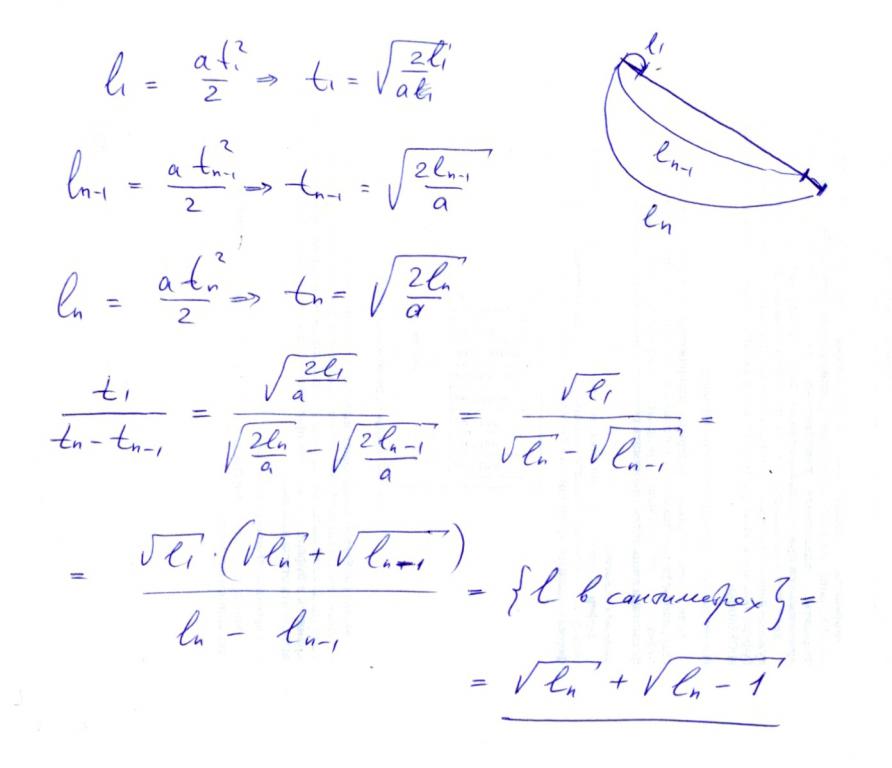 l₁ = at₁²/2 ⇒ t₁ = √(2l₁/at₁)
l₁
lₙ₋₁ = atₙ₋₁²/2 ⇒ tₙ₋₁ = √(2lₙ₋₁/a)
lₙ₋₁
lₙ
lₙ = atₙ²/2 ⇒ tₙ = √(2lₙ/a)
t₁/(tₙ - tₙ₋₁) = √(2l₁/a)/(√(2lₙ/a) - √(2lₙ₋₁/a)) = √l₁/(√lₙ - √lₙ₋₁) =
= √l₁·(√lₙ + √lₙ₋₁)/(lₙ - lₙ₋₁) = {l в сантиметрах} =
= √lₙ + √(lₙ - 1)